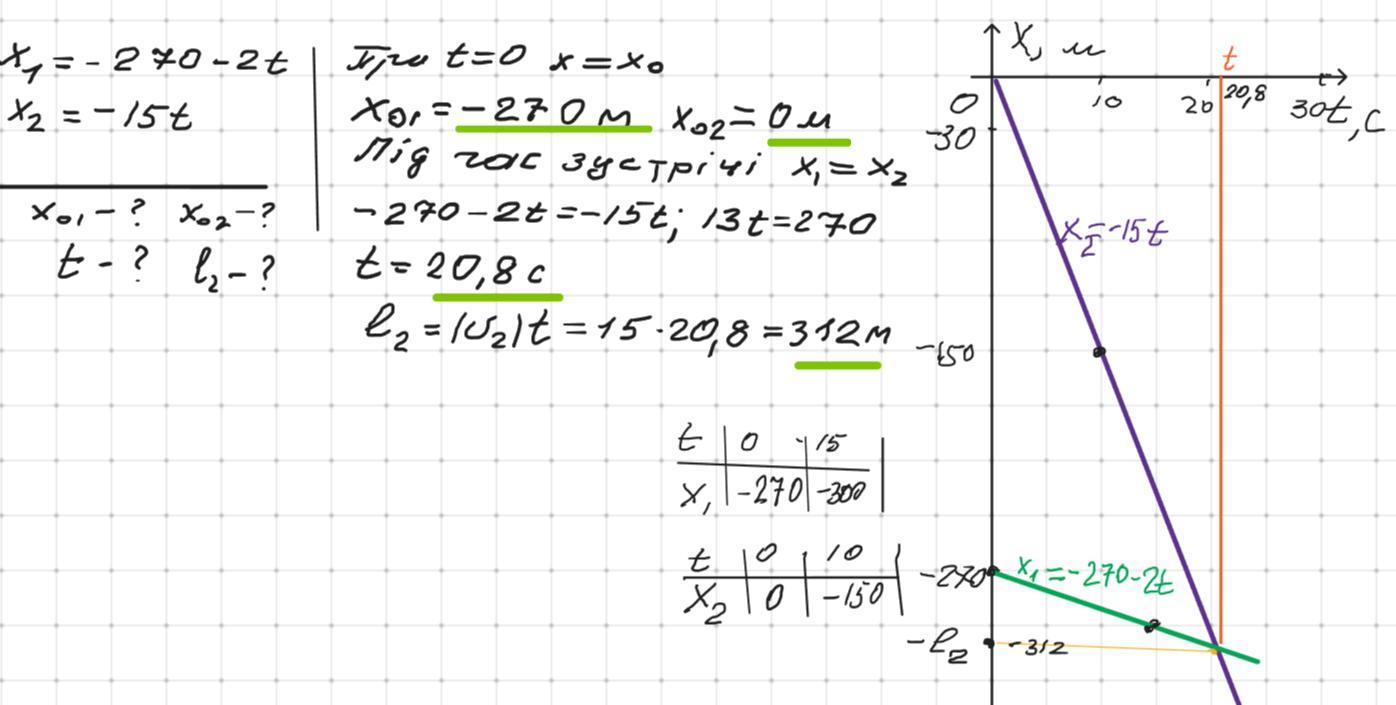 x₁ = -270-2t
x₂ = -15t
x₀₁ - ? x₀₂ - ?
t - ? l₂ - ?
При t=0 x=x₀
x₀₁ = -270 м x₀₂ = 0 м
Під час зустрічі x₁ = x₂
-270-2t=-15t; 13t=270
t = 20,8 c
l₂ = |υ₂|t = 15·20,8 = 312 м
t 0 15
x₁ -270 -300
t 0 10
x₂ 0 -150
X, м
t
0 10 20 20,8 30 t, c
-30
x₂=-15t
-150
-270 x₁=-270-2t
-l₂ -312